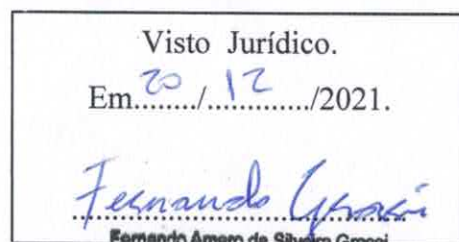 Visto Jurídico.
Em 20 / 12 /2021.
Fernando
Fernando Amero da Silveira